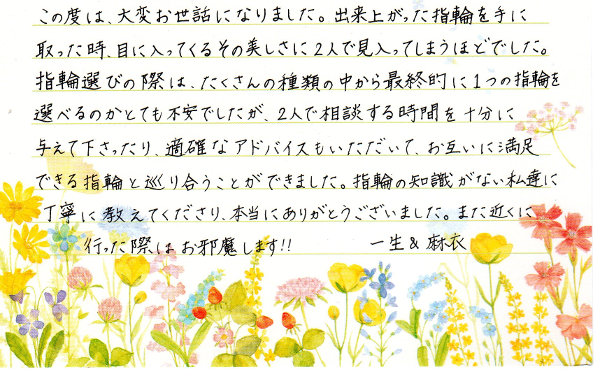 この度は、大変お世話になりました。出来上がった指輪を手に
取った時、目に入ってくるその美しさに2人で見入ってしまうほどでした。
指輪選びの際は、たくさんの種類の中から最終的に1つの指輪を
選べるのかとても不安でしたが、2人で相談する時間を十分に
与えて下さったり、適確なアドバイスもいただいて、お互いに満足
できる指輪と巡り合うことができました。指輪の知識がない私達に
丁寧に教えてくださり、本当にありがとうございました。また近くに
行った際はお邪魔します!! 一生&麻衣